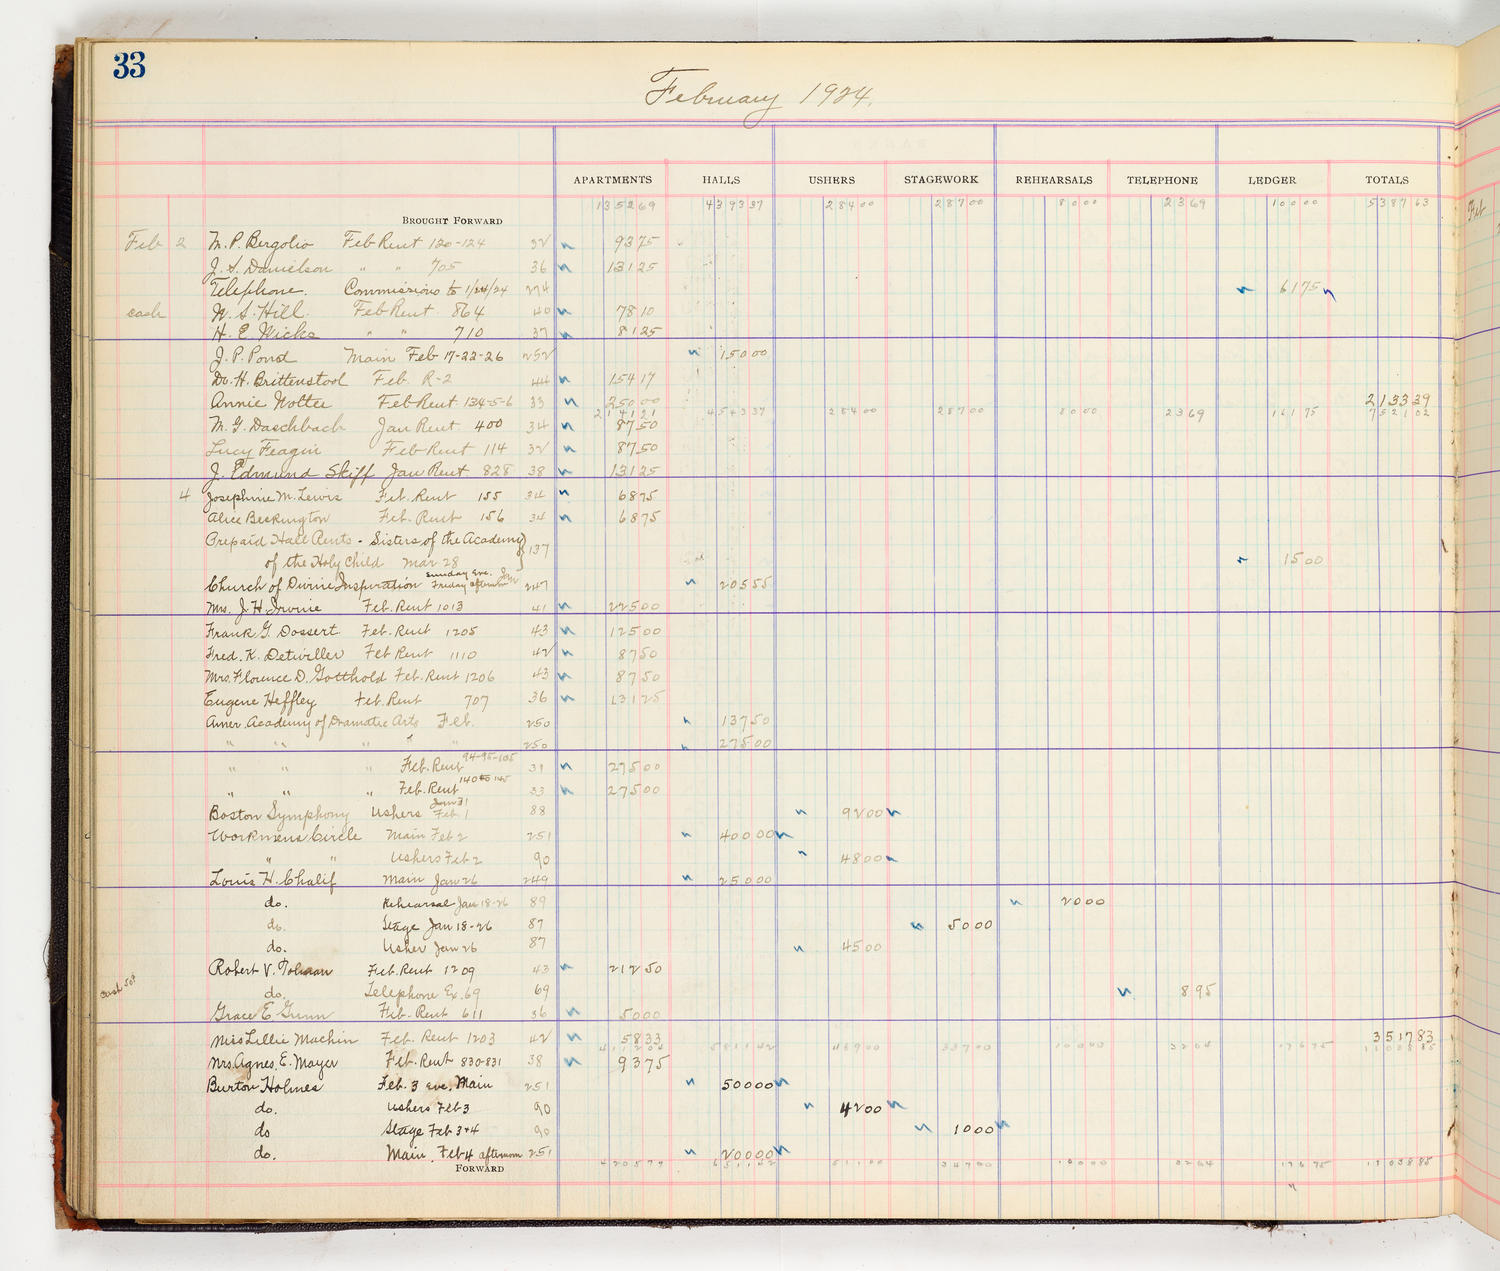 33
February 1924.
APARTMENTS HALLS USHERS STAGEWORK REHEARSALS TELEPHONE LEDGER TOTALS
BROUGHT FORWARD 135269 439337 28400 28700 8000 2369 10000 538763
Feb 2 M. P. Bergolio Feb Rent 120-124 32 9375
J. S. Danielson " " 705 36 13125
Telephone. Commissions to 1/24/24 274 6175
cash W. S. Hill. Feb Rent 864 40 7810
H. E. Wicks " " 710 37 8125
J. P. Pond Main Feb 17-22-26 252 15000
Dr. H. Brittenstool Feb. R-2 44 15417
Annie Wolter Feb Rent 134-5-6 33 25000 213339
214121 454337 28400 28700 8000 2369 16175 752102
M. G. Daschbach Jan Rent 400 34 8750
Lucy Feagin Feb Rent 114 32 8750
J. Edmund Skiff Jan Rent 828 38 13125
4 Josephine M. Lewis Feb. Rent 155 34 6875
Alice Beckington Feb. Rent 156 34 6875
Prepaid Hall Rents - Sisters of the Academy
of the Holy Child Mar 28 137 1500
Church of Divine Inspiration Sunday eve. Friday afternoon Jan 247 20555
Mrs. J. H. Irvine Feb. Rent 1013 41 22500
Frank G. Dossert. Feb. Rent 1205 43 12500
Fred. K. Detwiller Feb Rent 1110 42 8750
Mrs. Florence D. Gotthold Feb. Rent 1206 43 8750
Eugene Heffley Feb. Rent 707 36 13125
Amer. Academy of Dramatic Arts Feb. 250 13750
" " " " 250 27500
" " Feb. Rent 94-95-105 31 27500
" " " Feb. Rent 140 to 145 33 27500
Boston Symphony Ushers Jan 31 Feb. 1 88 9200
Workmens Circle Main Feb 2 251 40000
" " Ushers Feb 2 90 4800
Louis H. Chalif Main Jan 26 249 25000
do. Rehearsal Jan 18-26 89 2000
do. Stage Jan 18-26 87 5000
do. Usher Jan 26 87 4500
Robert V. Tolman Feb. Rent 1209 43 21250
do. Telephone Ex. 69 69 895
Grace E. Gunn Feb. Rent 611 36 5000
Miss Lillie Machin Feb. Rent 1203 42 5833 351783
411204 581142 46900 33700 10000 3264 17675 1103885
Mrs. Agnes. E. Mayer Feb. Rent 830-831 38 9375
Burton Holmes Feb. 3 eve. Main 251 50000
do. Ushers Feb 3 90 4200
do Stage Feb 3+4 90 1000
do. Main, Feb 4 afternoon 251 20000
FORWARD 420579 651142 51100 34700 10000 3264 17675 1103885